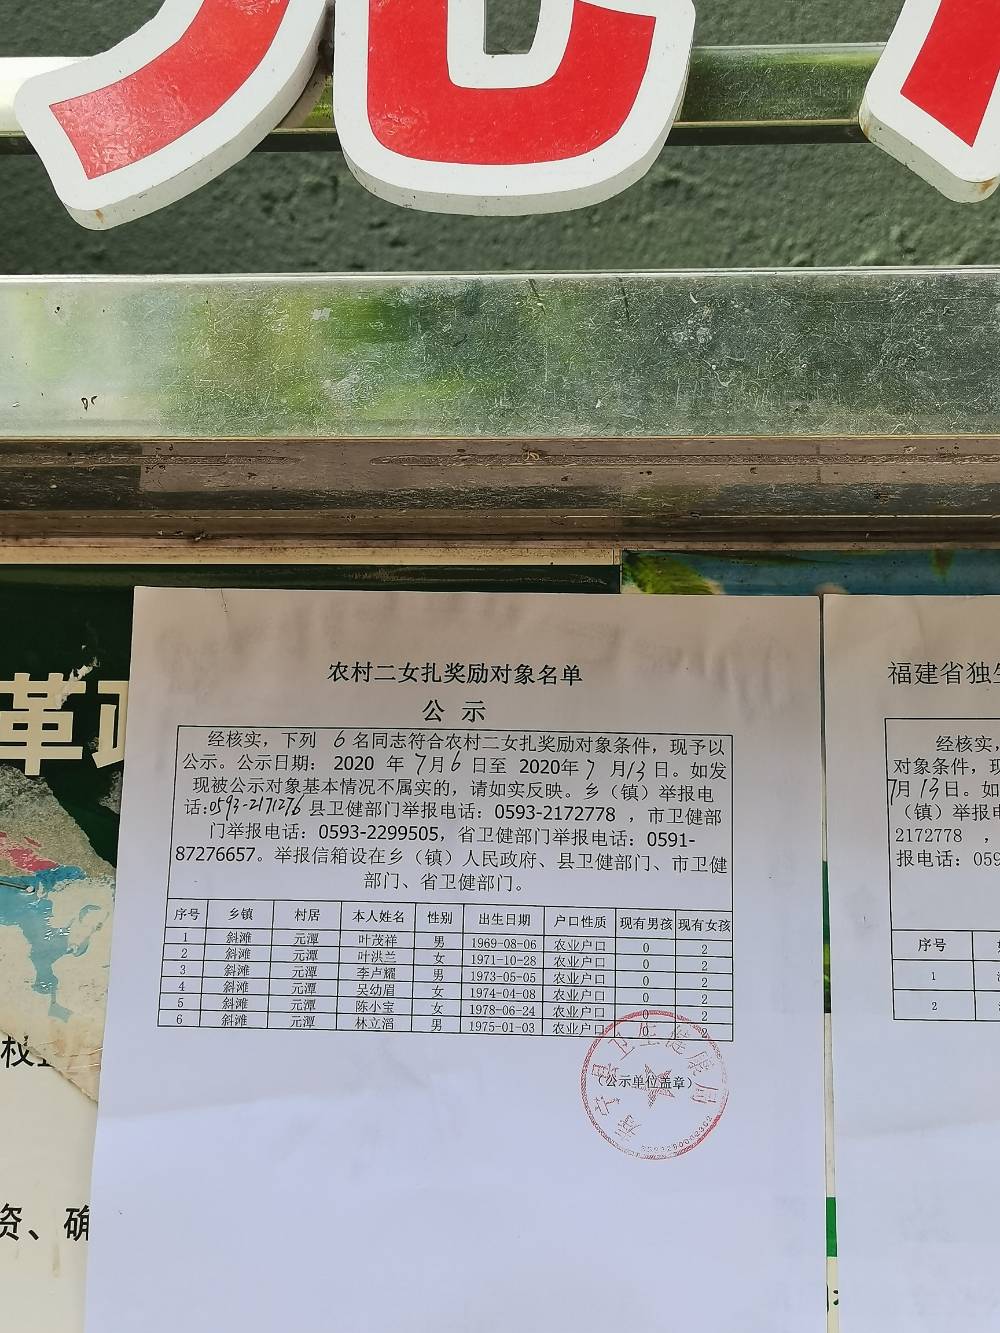 革
农村二女扎奖励对象名单
公 示
经核实，下列 6 名同志符合农村二女扎奖励对象条件，现予以
公示。公示日期： 2020 年 7月 6 日至 2020年 7 月 13 日。如发
现被公示对象基本情况不属实的，请如实反映。乡（镇）举报电
话:0593-2171276 县卫健部门举报电话：0593-2172778 ，市卫健部
门举报电话：0593-2299505，省卫健部门举报电话：0591-
87276657。举报信箱设在乡（镇）人民政府、县卫健部门、市卫健
部门、省卫健部门。
序号 乡镇 村居 本人姓名 性别 出生日期 户口性质 现有男孩 现有女孩
1 斜滩 元潭 叶茂祥 男 1969-08-06 农业户口 0 2
2 斜滩 元潭 叶洪兰 女 1971-10-28 农业户口 0 2
3 斜滩 元潭 李卢耀 男 1973-05-05 农业户口 0 2
4 斜滩 元潭 吴幼眉 女 1974-04-08 农业户口 0 2
5 斜滩 元潭 陈小宝 女 1978-06-24 农业户口 0 2
6 斜滩 元潭 林立滔 男 1975-01-03 农业户口 0 2
寿宁县卫生健康局
（公示单位盖章）
福建省独生
经核实，
对象条件，现
7月 13 日。如
（镇）举报电
2172778 ，
报电话：059
序号
1
2
权
资、确